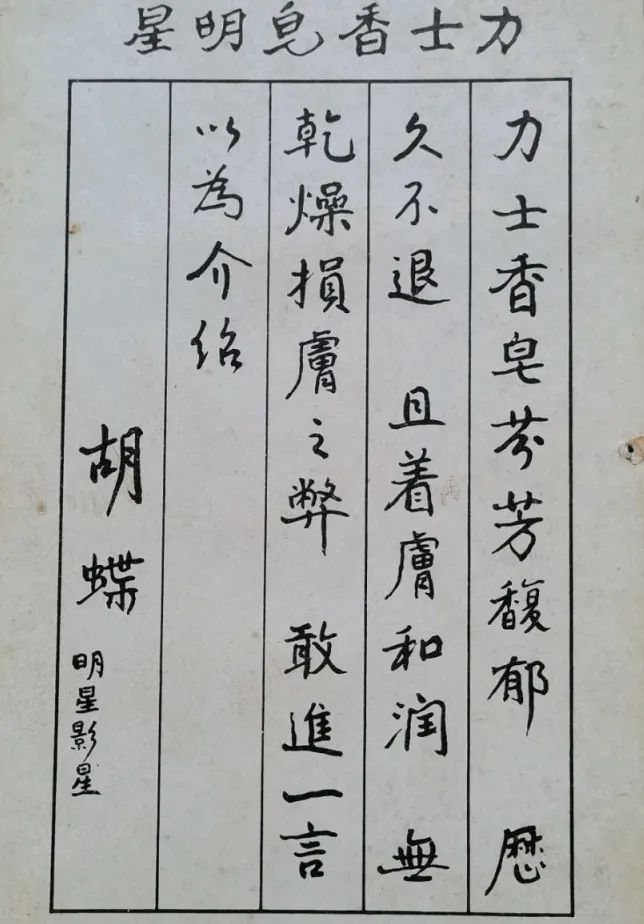 力士香皂明星
力士香皂芬芳馥郁 歷
久不退 且着膚和润 無
乾燥損膚之弊 敢進一言
以為介绍
胡蝶 明星影星